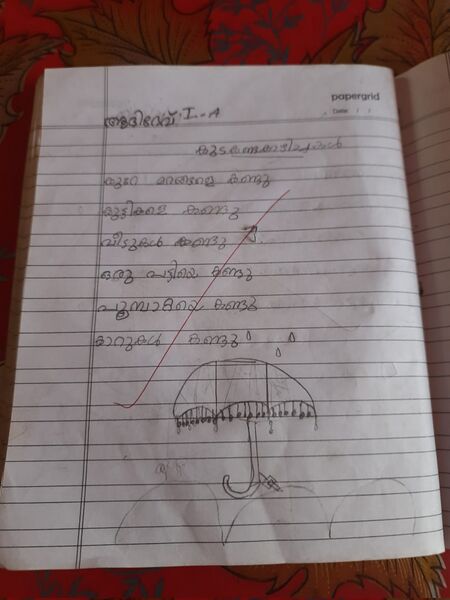 papergrid
Date: / /
ആദിദേവ് I-A
കുട കണ്ട കാഴ്ചകൾ
കുറേ മരങ്ങളെ കണ്ടു
കുട്ടികളെ കണ്ടു
വീടുകൾ കണ്ടു
ഒരു പട്ടിയെ കണ്ടു
പൂമ്പാറ്റയെ കണ്ടു
കാറുകൾ കണ്ടു